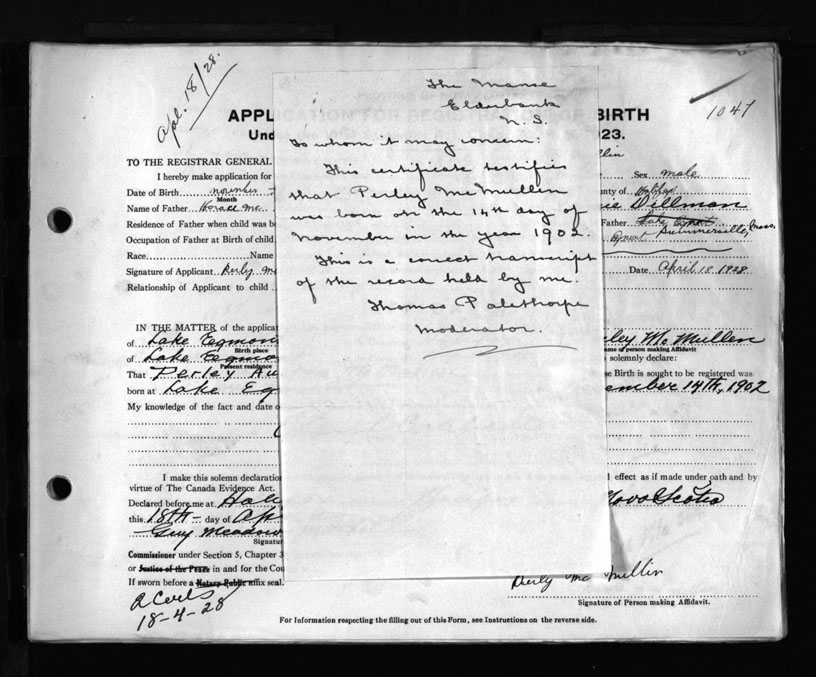 Apl. 18/28.
1047
APPL
BIRTH
Und
923.
TO THE REGISTRAR GENERAL
llin
I hereby make application for
Sex male
Date of Birth november
Month
unty of Halifax
Name of Father Horace Mc
ie Dillman
Residence of Father when child was bo
Father Lake Egmont
Occupation of Father at Birth of child
Egmont Summerville, Mass,
Race Name
Signature of Applicant Perly Mc
Date April 18 1928
Relationship of Applicant to child
The Manse
Elderbank
N. S.
To whom it may concern:
This certificate testifies
that Perley McMullen
was born on the 14th day of
November in the year 1902.
This is a correct transcript
of the record held by me.
Thomas Palethorpe
Moderator.
IN THE MATTER of the applicat
ley Mc Mullen
of Lake Egmon
Birth place
ame of person making Affidavit
of Lake Egmo
solemnly declare:
Present residence
That Perley Au
e Birth is sought to be registered was
born at Lake Eg
ember 14th, 1902
My knowledge of the fact and date o
I make this solemn declaration
d effect as if made under oath and by
virtue of The Canada Evidence Act.
Declared before me at Hali
Nova Scotia
this 18th day of Apr
Guy Meadow
Signatu
Commissioner under Section 5, Chapter 3
or Justice of the Peace in and for the Cou
If sworn before a Notary Public affix seal.
Perly Mc Mullin
Signature of Person making Affidavit.
18-4-28
For Information respecting the filling out of this Form, see Instructions on the reverse side.